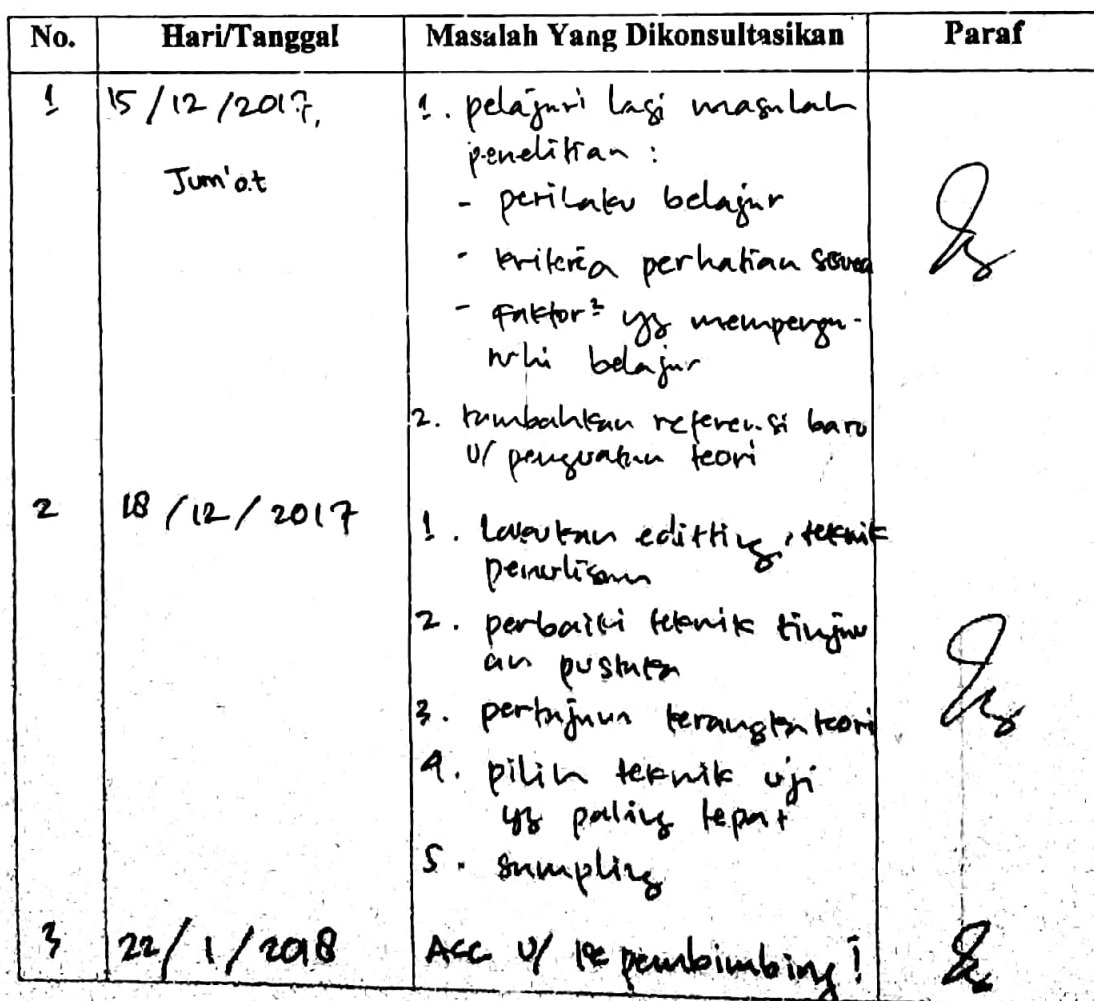 No. Hari/Tanggal Masalah Yang Dikonsultasikan Paraf
1 15/12/2017, 1. pelajari lagi masalah
penelitian :
Jum'at
- perilaku belajar
- kriteria perhatian
- Faktor² yg mempenga-
ruhi belajar
2. tambahkan referensi baru
u/ penguatan teori
2 18/12/2017
1. Lakukan editting, teknik
penulisan
2. perbaiki teknik tinjau
an pustaka
3. pertajam kerangka teori
4. pilih teknik uji
yg paling tepat
5. sampling
3 22/1/2018 Acc u/ ke pembimbing I